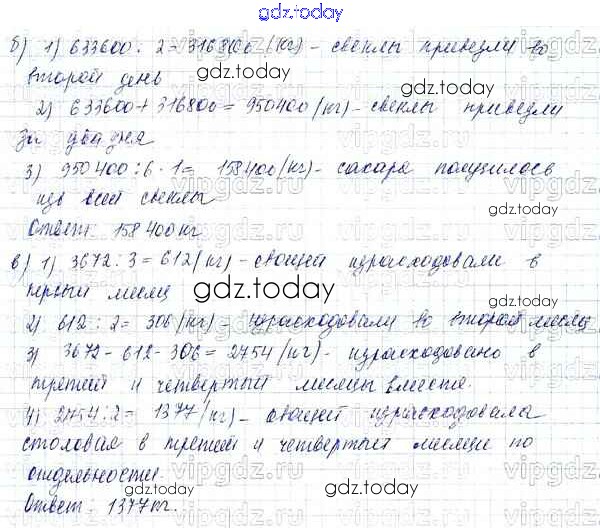 gdz.today
б) 1) 633600 : 2 = 316800 (кг) - свеклы привезли во
второй день
gdz.today
2) 633600 + 316800 = 950400 (кг) - свеклы привезли
за два дня
3) 950400 : 6 · 1 = 158400 (кг) - сахара получилось
из всей свеклы
gdz.today
Ответ: 158400 кг
в) 1) 3672 : 3 = 612 (кг) - овощей израсходовали в
первый месяц
gdz.today
2) 612 : 2 = 306 (кг) - израсходовали во второй месяц
3) 3672 - 612 - 306 = 2754 (кг) - израсходовано в
третий и четвертый месяцы вместе.
gdz.today
4) 2754 : 2 = 1377 (кг) - овощей израсходовала
столовая в третий и четвертый месяцы по
отдельности.
gdz.today
Ответ: 1377 кг.